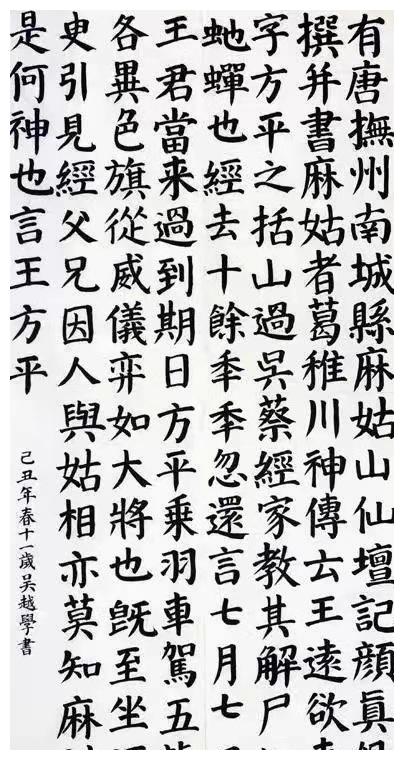 有唐撫州南城縣麻姑山仙壇記顔真
撰并書麻姑者葛稚川神傳云王遠欲
字方平之括山過吳蔡經家教其解尸
虵蟬也經去十餘秊秊忽還言七月七
王君當来過到期日方平乗羽車駕五
各異色旗從威儀弈如大將也既至坐
臾引見經父兄因人與姑相亦莫知麻
是何神也言王方平
己丑年春十一歲吴越學書